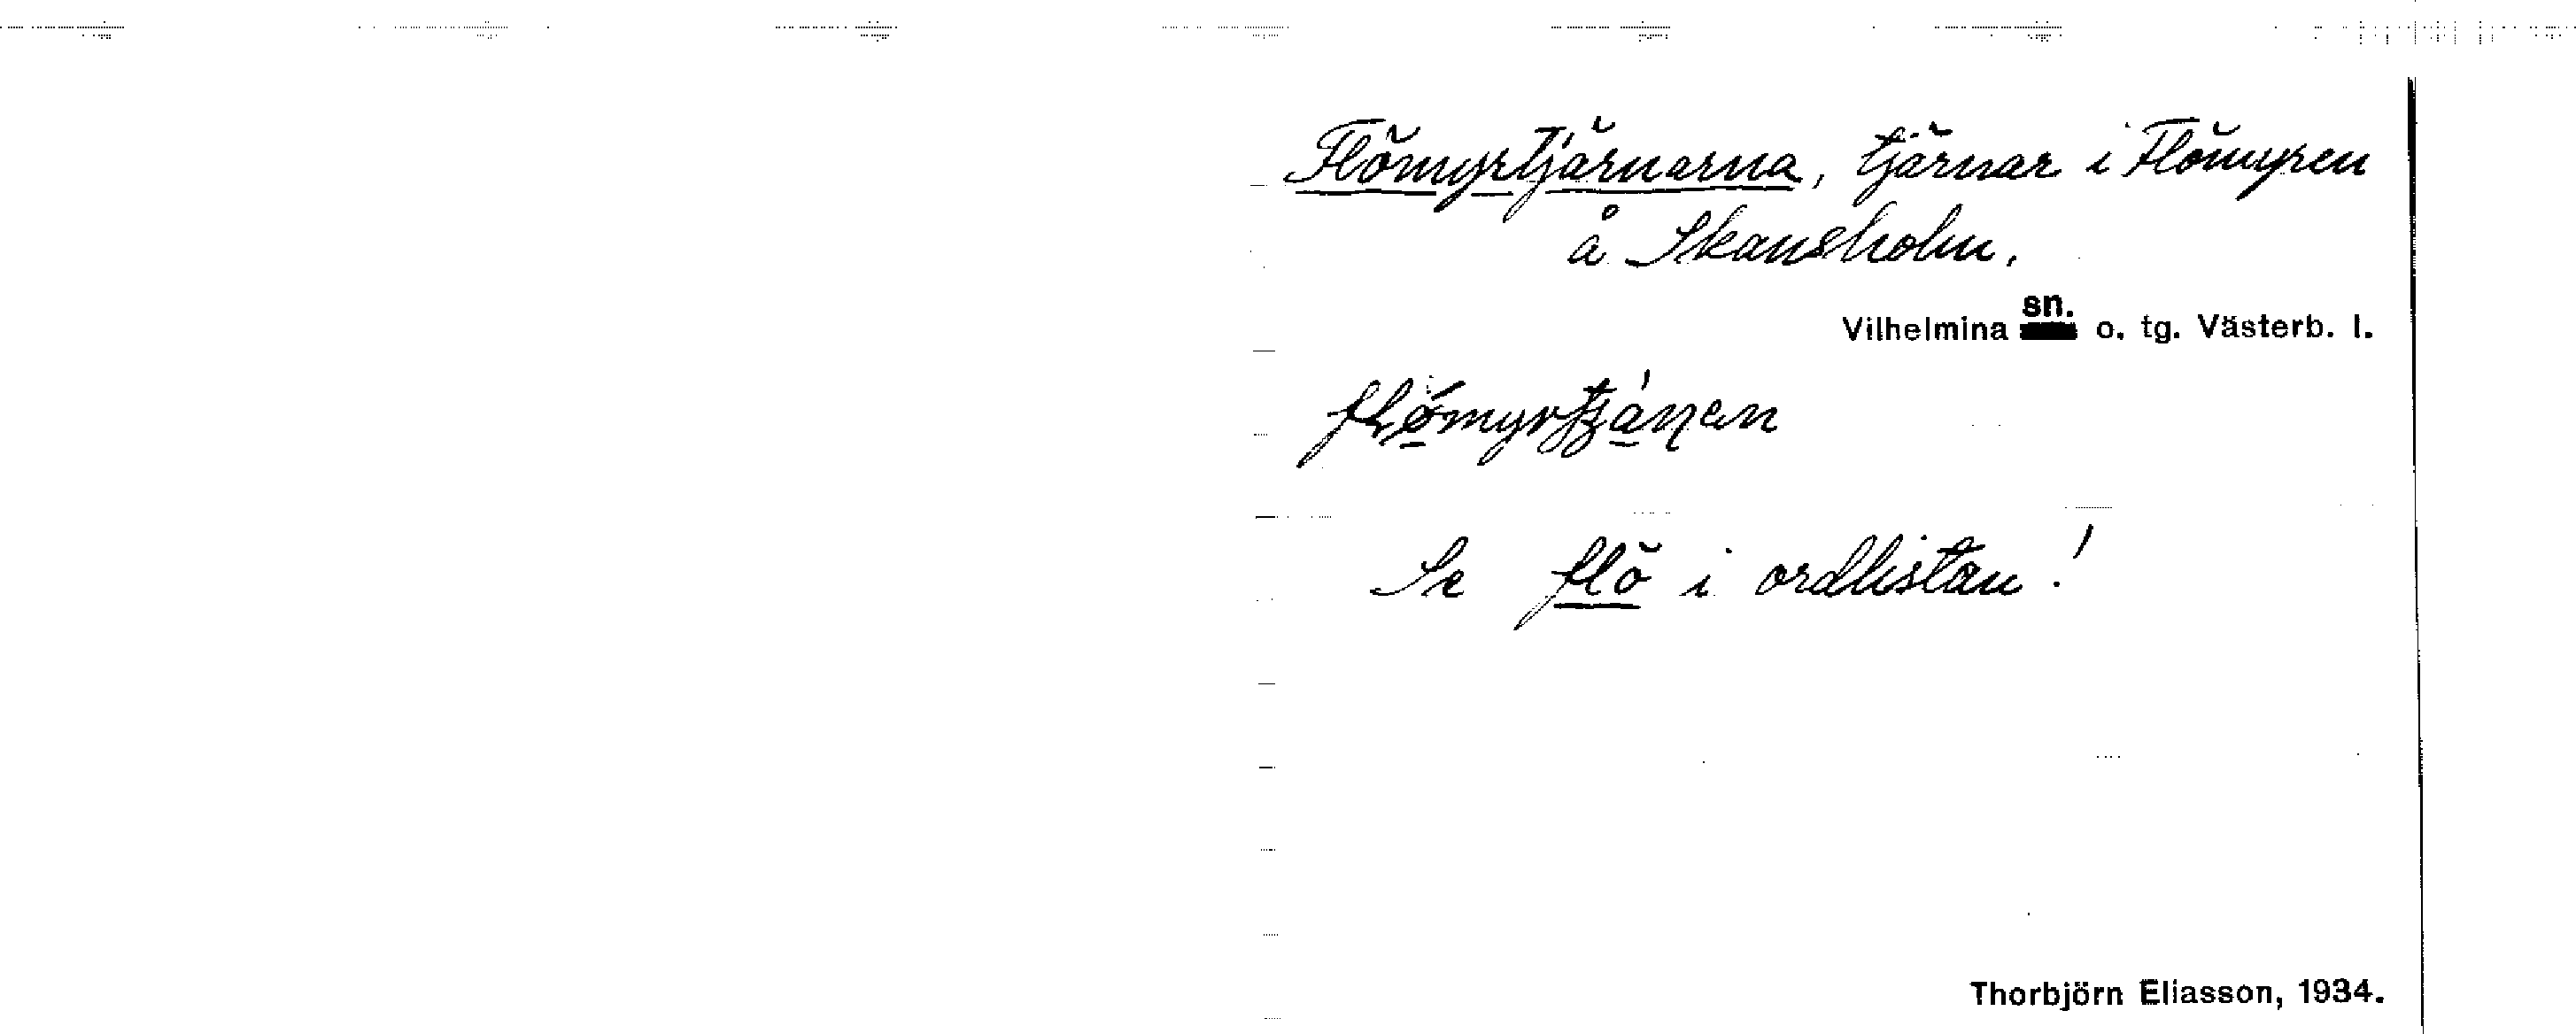 Flömyrtjärnarna, tjärnar i Flömyren
å Skansholm.
Vilhelmina sn. o. tg. Västerb. l.
Se flö i ordlistan!
Thorbjörn Eliasson, 1934.